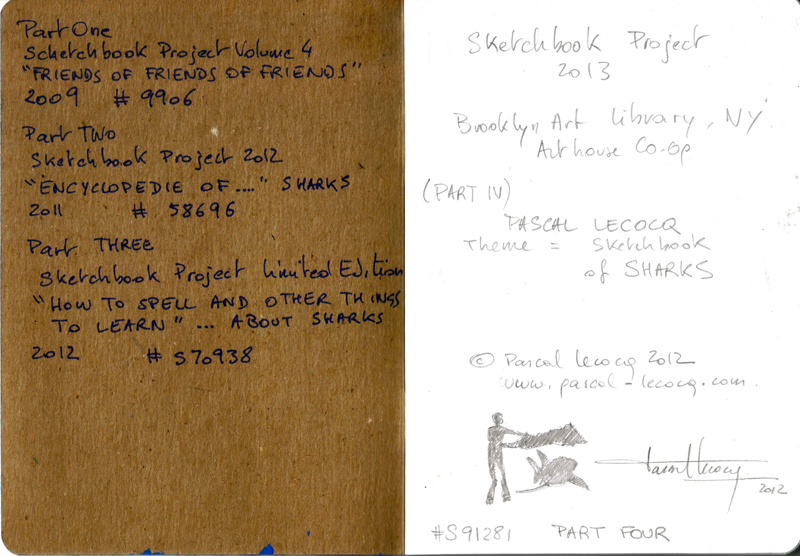 Part One
Scketchbook Project Volume 4
"FRIENDS OF FRIENDS OF FRIENDS"
2009 # 9906
Part TWO
Sketchbook Project 2012
"ENCYCLOPEDIE OF...." SHARKS
2011 # 58696
Part THREE
Sketchbook Project Limited Edition
"HOW TO SPELL AND OTHER THINGS
TO LEARN" ... ABOUT SHARKS
2012 # S70938
Sketchbook Project
2013
Brooklyn Art Library, NY
Art house Co-op
(PART IV)
PASCAL LECOCQ
Theme = Sketchbook
of SHARKS
© Pascal Lecocq 2012
www.pascal-lecocq.com.
Pascal Lecocq
2012
#S91281 PART FOUR